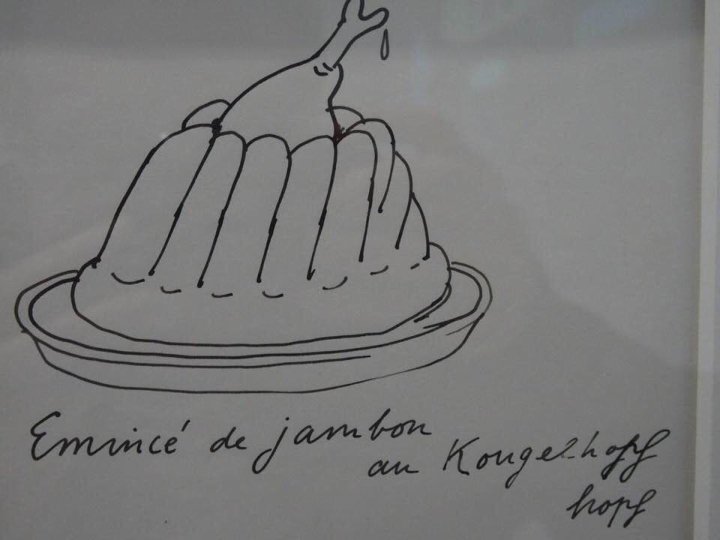 Emincé de jambon
au Kougelhopf
hopf